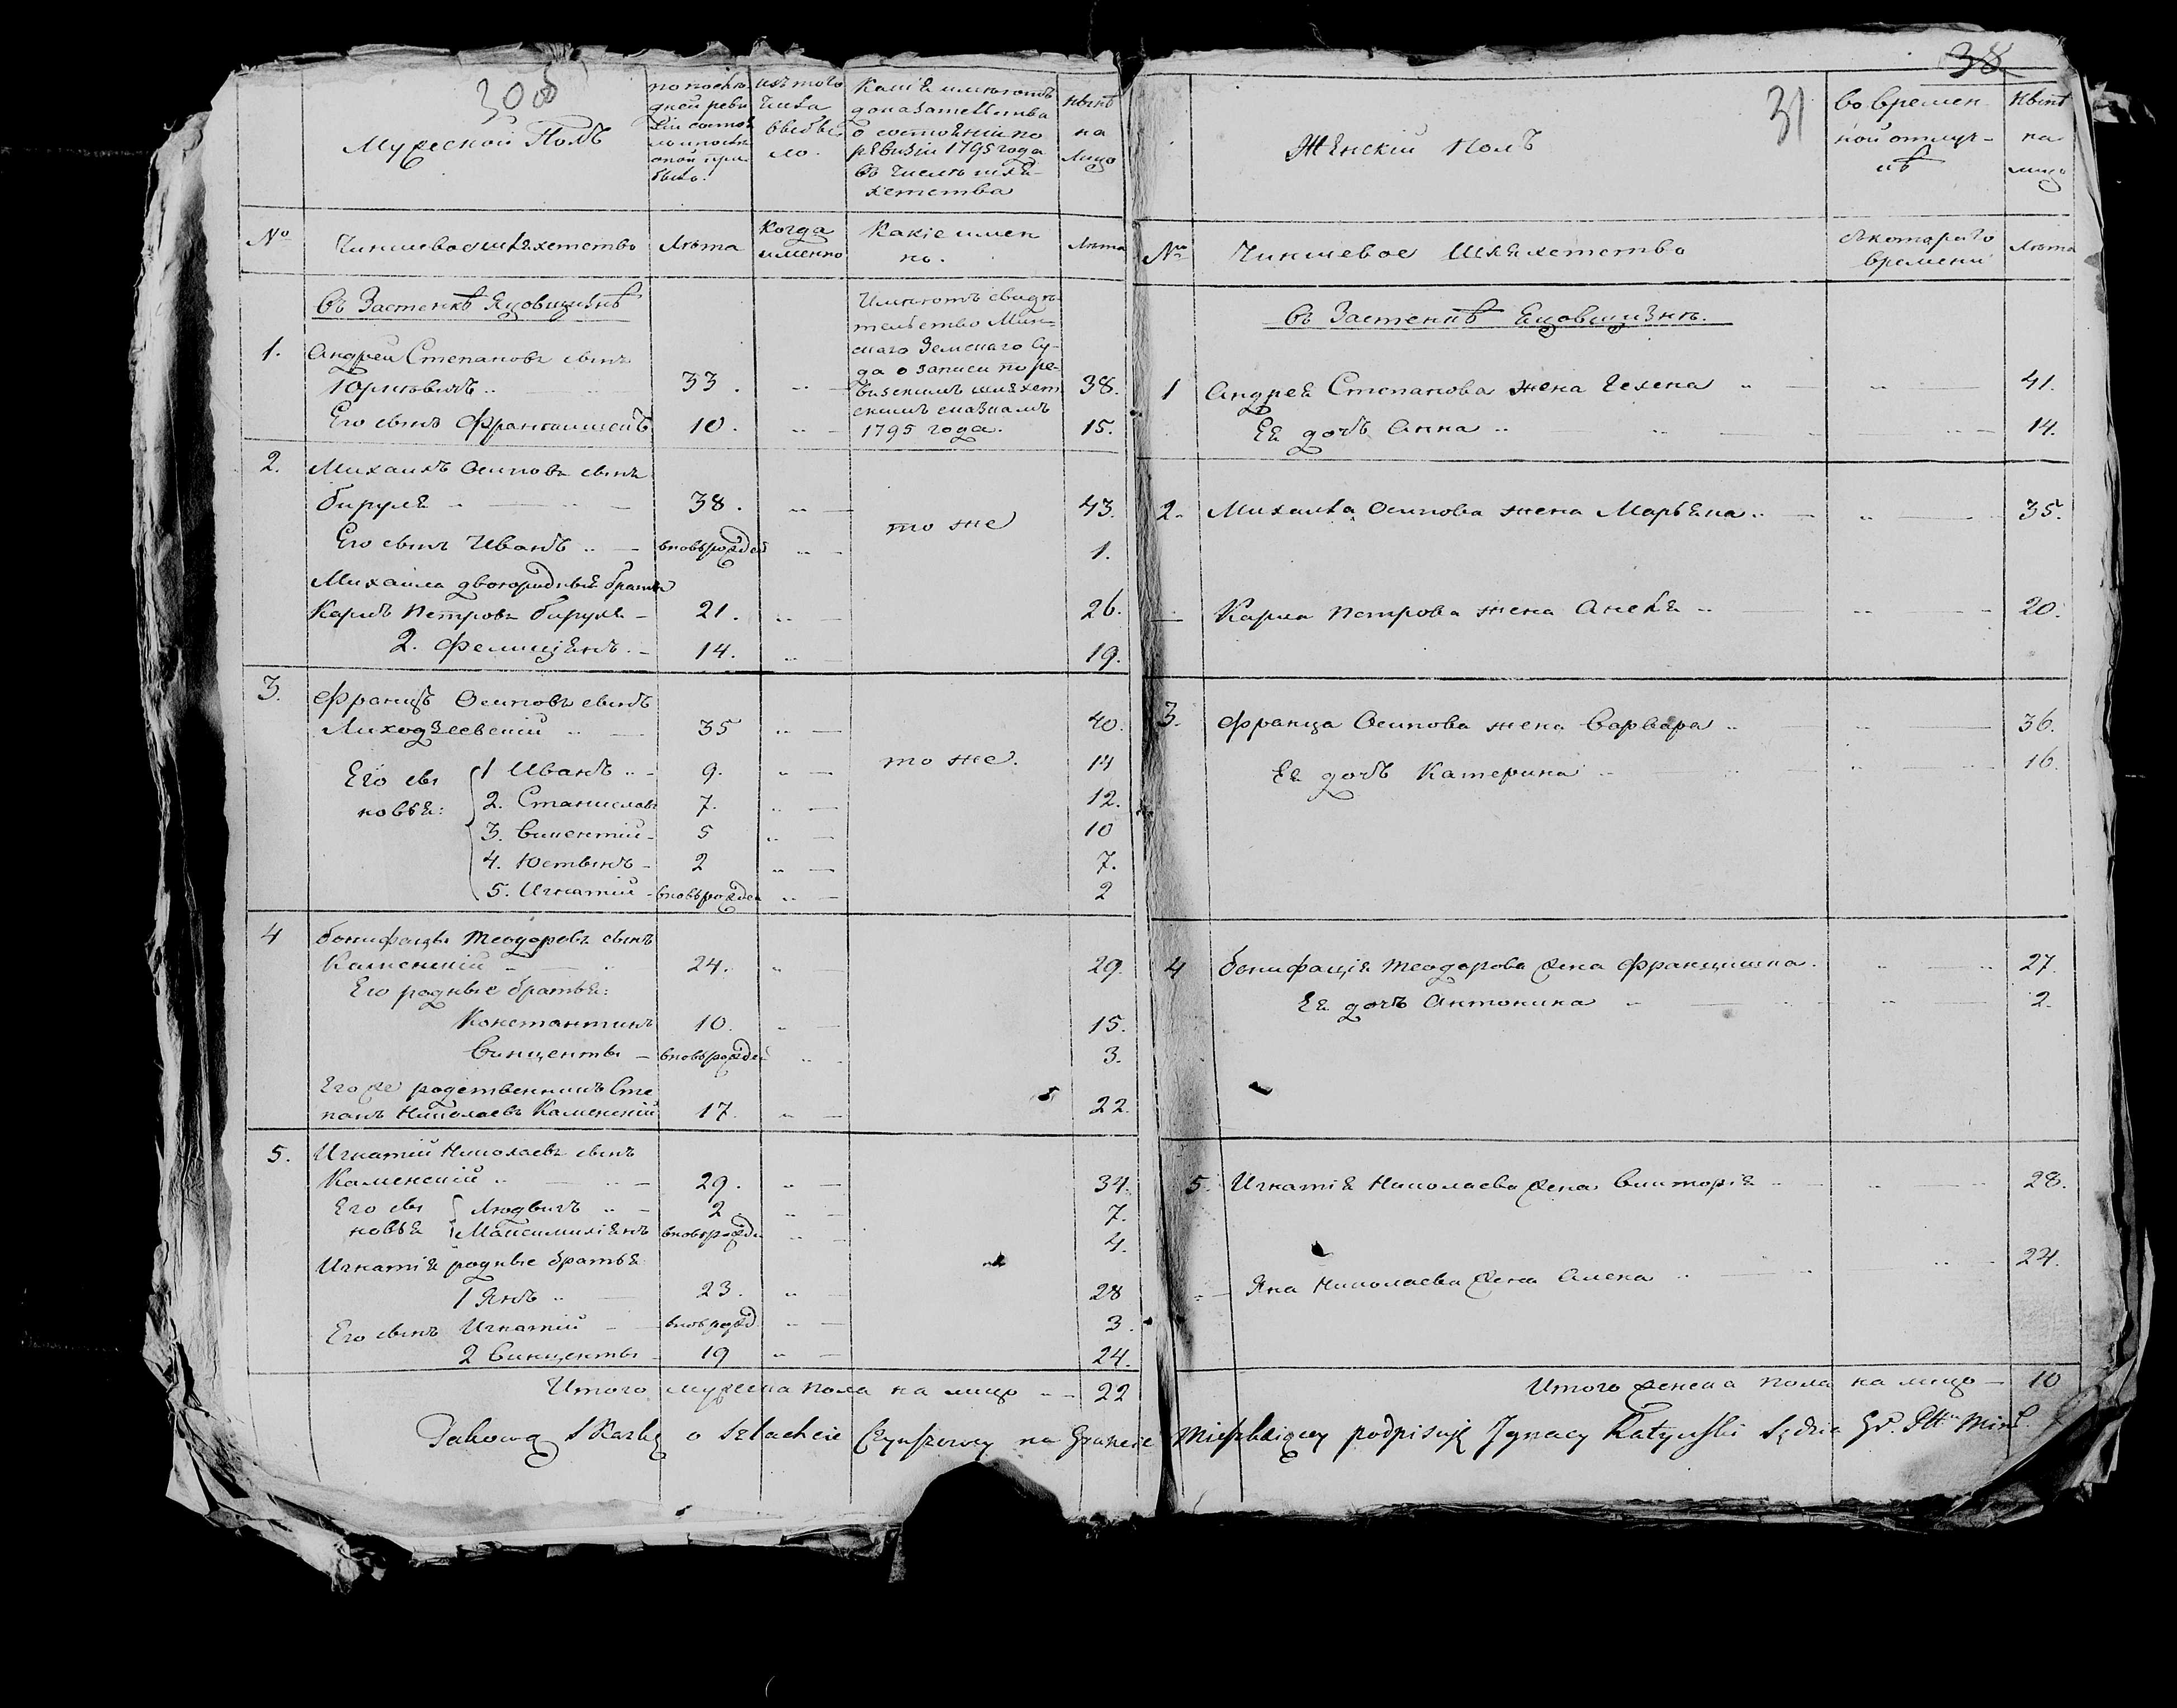 30 об
Мужеской Полъ
по послѣд
ней реви
зіи состоя
ло и послѣ
оной при
было.
изъ того
числа
выбы
ло.
Какія имѣютъ
доказательства
о состояніи по
ревизіи 1795 года
въ числѣ шля-
хетства
нынѣ
на
лицо
№
Чиншевое шляхетство
Лѣта
Когда
именно
Какіе имен
но.
Лѣта
Въ Застенкѣ Яцовщизнѣ
Имѣютъ свидѣ
тельство Мин-
скаго Земскаго Су-
да о записи по ре-
визскимъ шляхет
скимъ сказкамъ
1795 года.
1. Андрей Степановъ сынъ
33. 38.
Его сынъ Францишекъ 10. 15.
2. Михаилъ Осиповъ сынъ
Бируля 38. то же 43.
Его сынъ Иванъ вновьрожден 1.
Михаила двоюродный братъ
Карлъ Петровъ Бируля 21. 26.
2. Фелиціянъ. 14. 19.
3. Францъ Осиповъ сынъ
Лиходзіевскій 35 то же. 40.
Его сы
новья:
1 Иванъ 9. 14
2. Станиславъ 7. 12.
3. Викентій 5 10
4. Юстынъ 2 7.
5. Игнатій вновьрожден 2
4 Бонифацы Теодоровъ сынъ
Каменскій 24. 29.
Его родные братья:
Константинъ 10. 15.
Винценты вновьрожден 3.
Его же родственникъ Сте
панъ Николаевъ Каменскій 17. 22.
5. Игнатій Николаевъ сынъ
Каменскій 29. 34.
Его сы
новья
Людвигъ 2 7.
Максимиліянъ вновьрожден 4.
Игнатія родные братья
1 Янъ 23. 28
Его сынъ Игнатій вновьрожд 3.
2 Винценты 19 24.
Итого мужеска пола на лицо 22
38
31
Женскій Полъ
Во времен
ной отлуч-
кѣ
Нынѣ
на
лицо
№
Чиншевое Шляхетство
съ котораго
времени
Лѣта
Въ Застенкѣ Яцовщизнѣ.
1 Андрея Степанова жена Гелена 41.
Ея дочь Анна 14.
2. Михаила Осипова жена Марьяна 35.
Карла Петрова жена Анеля 20.
3. Франца Осипова жена Варвара 36.
Ея дочь Катерина 16.
4 Бонифація Теодорова жена Францишка. 27.
Ея дочь Антонина 2.
5. Игнатія Николаева жена Викторія 28.
Яна Николаева жена 24.
Итого женска пола на лицо 10
Takową Skazkę o Szlachcie Czynszowey na Gruncie Mieszkaiącey podpisuję Ignacy Ratyński Sędzia Gr. Ptu Minś.